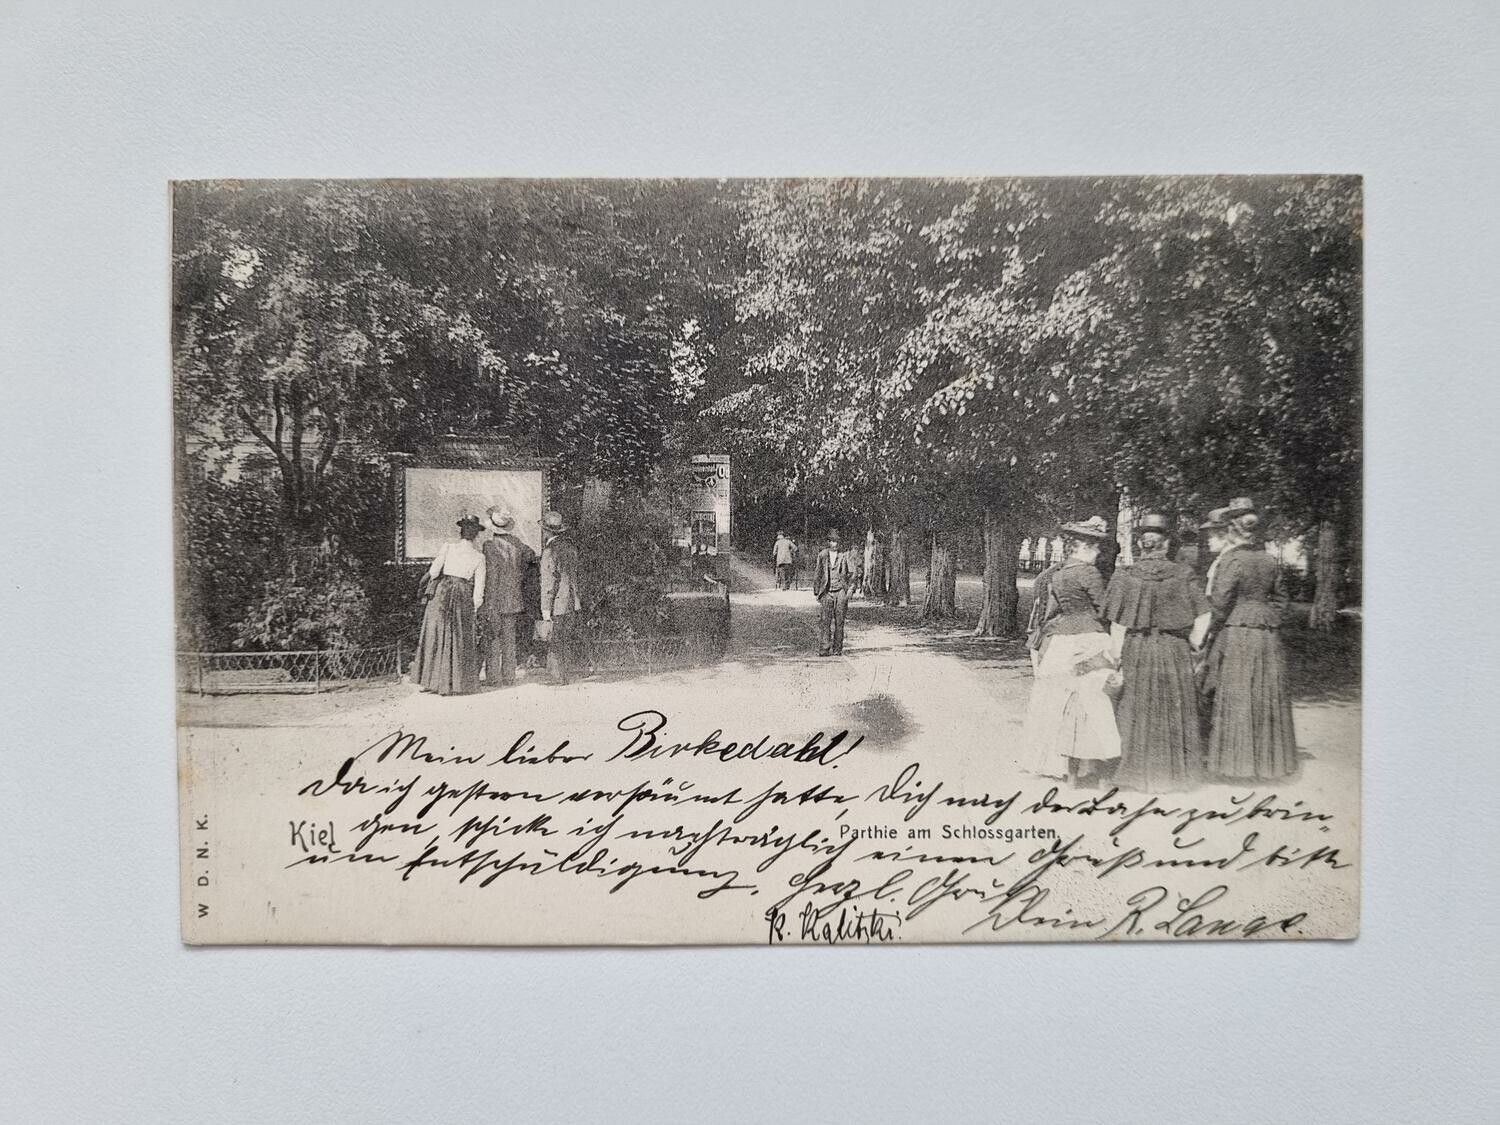 Mein lieber Birkedahl!
Da ich gestern versäumt hatte, Dich nach der Bahn zu brin-
gen, schicke ich nachträglich einen Gruß und bitte
um Entschuldigung. Herzl. Gruß
Dein R. Lange.
K. Kalitzki.
Kiel
Parthie am Schlossgarten.
W D. N. K.